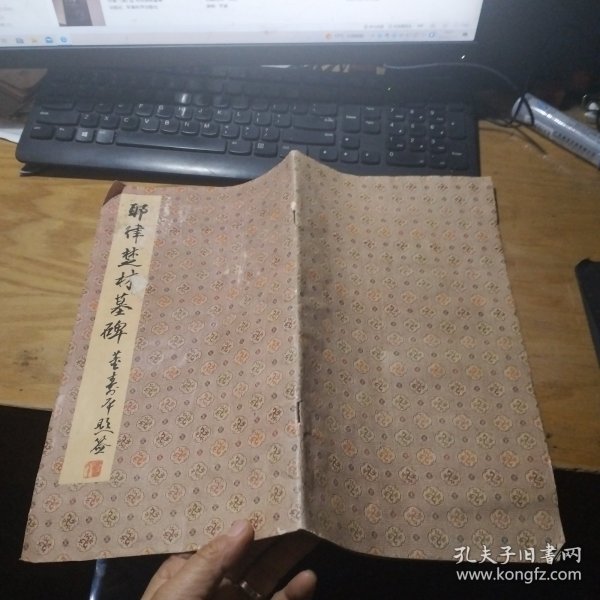 耶律楚材墓碑
董寿平题签
孔夫子旧书网
www.kongfz.com